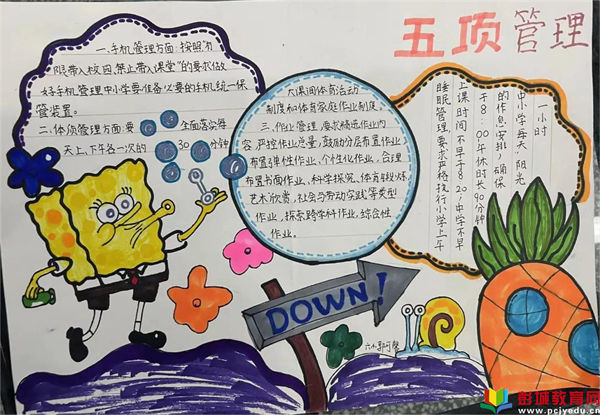 五项管理
一.手机管理方面:按照"有
限带入校园,禁止带入课堂"的要求做
好手机管理,中小学要准备必要的手机统一保
管装置。
二.体质管理方面:要 全面落实每
天上、下午各一次的 30 分钟
大课间体育活动
制度和体育家庭作业制度.
三.作业管理,要求精选作业内
容,严控作业总量,鼓励分层布置作业,
布置弹性作业、个性化作业,合理
布置书面作业、科学探究、体育锻炼、
艺术欣赏、社会与劳动实践等类型
作业,探索跨学科作业,综合性
作业。
睡眠管理要求严格执行小学上午
上课时间不早于8:20,中学不早
于8:00,午休时长90分钟
的作息安排,确保
中小学每天"阳光
一小时
DOWN!
彭城教育网
www.pcjyedu.cn